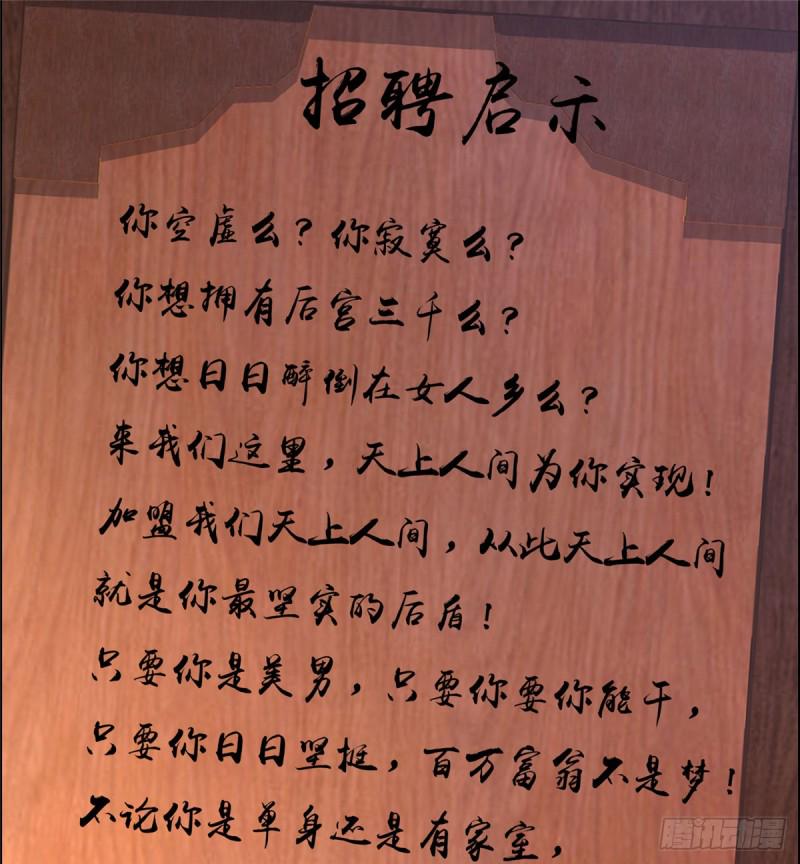 招聘启示
你空虚么？你寂寞么？
你想拥有后宫三千么？
你想日日醉倒在女人乡么？
来我们这里，天上人间为你实现！
加盟我们天上人间，从此天上人间
就是你最坚实的后盾！
只要你是美男，只要你要你能干，
只要你日日坚挺，百万富翁不是梦！
不论你是单身还是有家室，
腾讯动漫